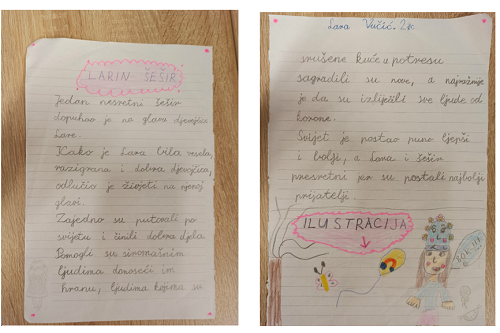 LARIN ŠEŠIR
Jedan nesretni šešir
dopuhao je na glavu djevojčice
Lare.
Kako je Lara bila vesela,
razigrana i dobra djevojčica,
odlučio je živjeti na njenoj
glavi.
Zajedno su putovali po
svijetu i činili dobra djela.
Pomogli su siromašnim
ljudima donoseći im
hranu, ljudima kojima su
Lara Vučić, 2.
srušene kuće u potresu
sagradili su nove, a najvažnije
je da su izliječili sve ljude od
korone.
Svijet je postao puno ljepši
i bolji, a Lara i šešir
presretni jer su postali najbolji
prijatelji.
ILUSTRACIJA